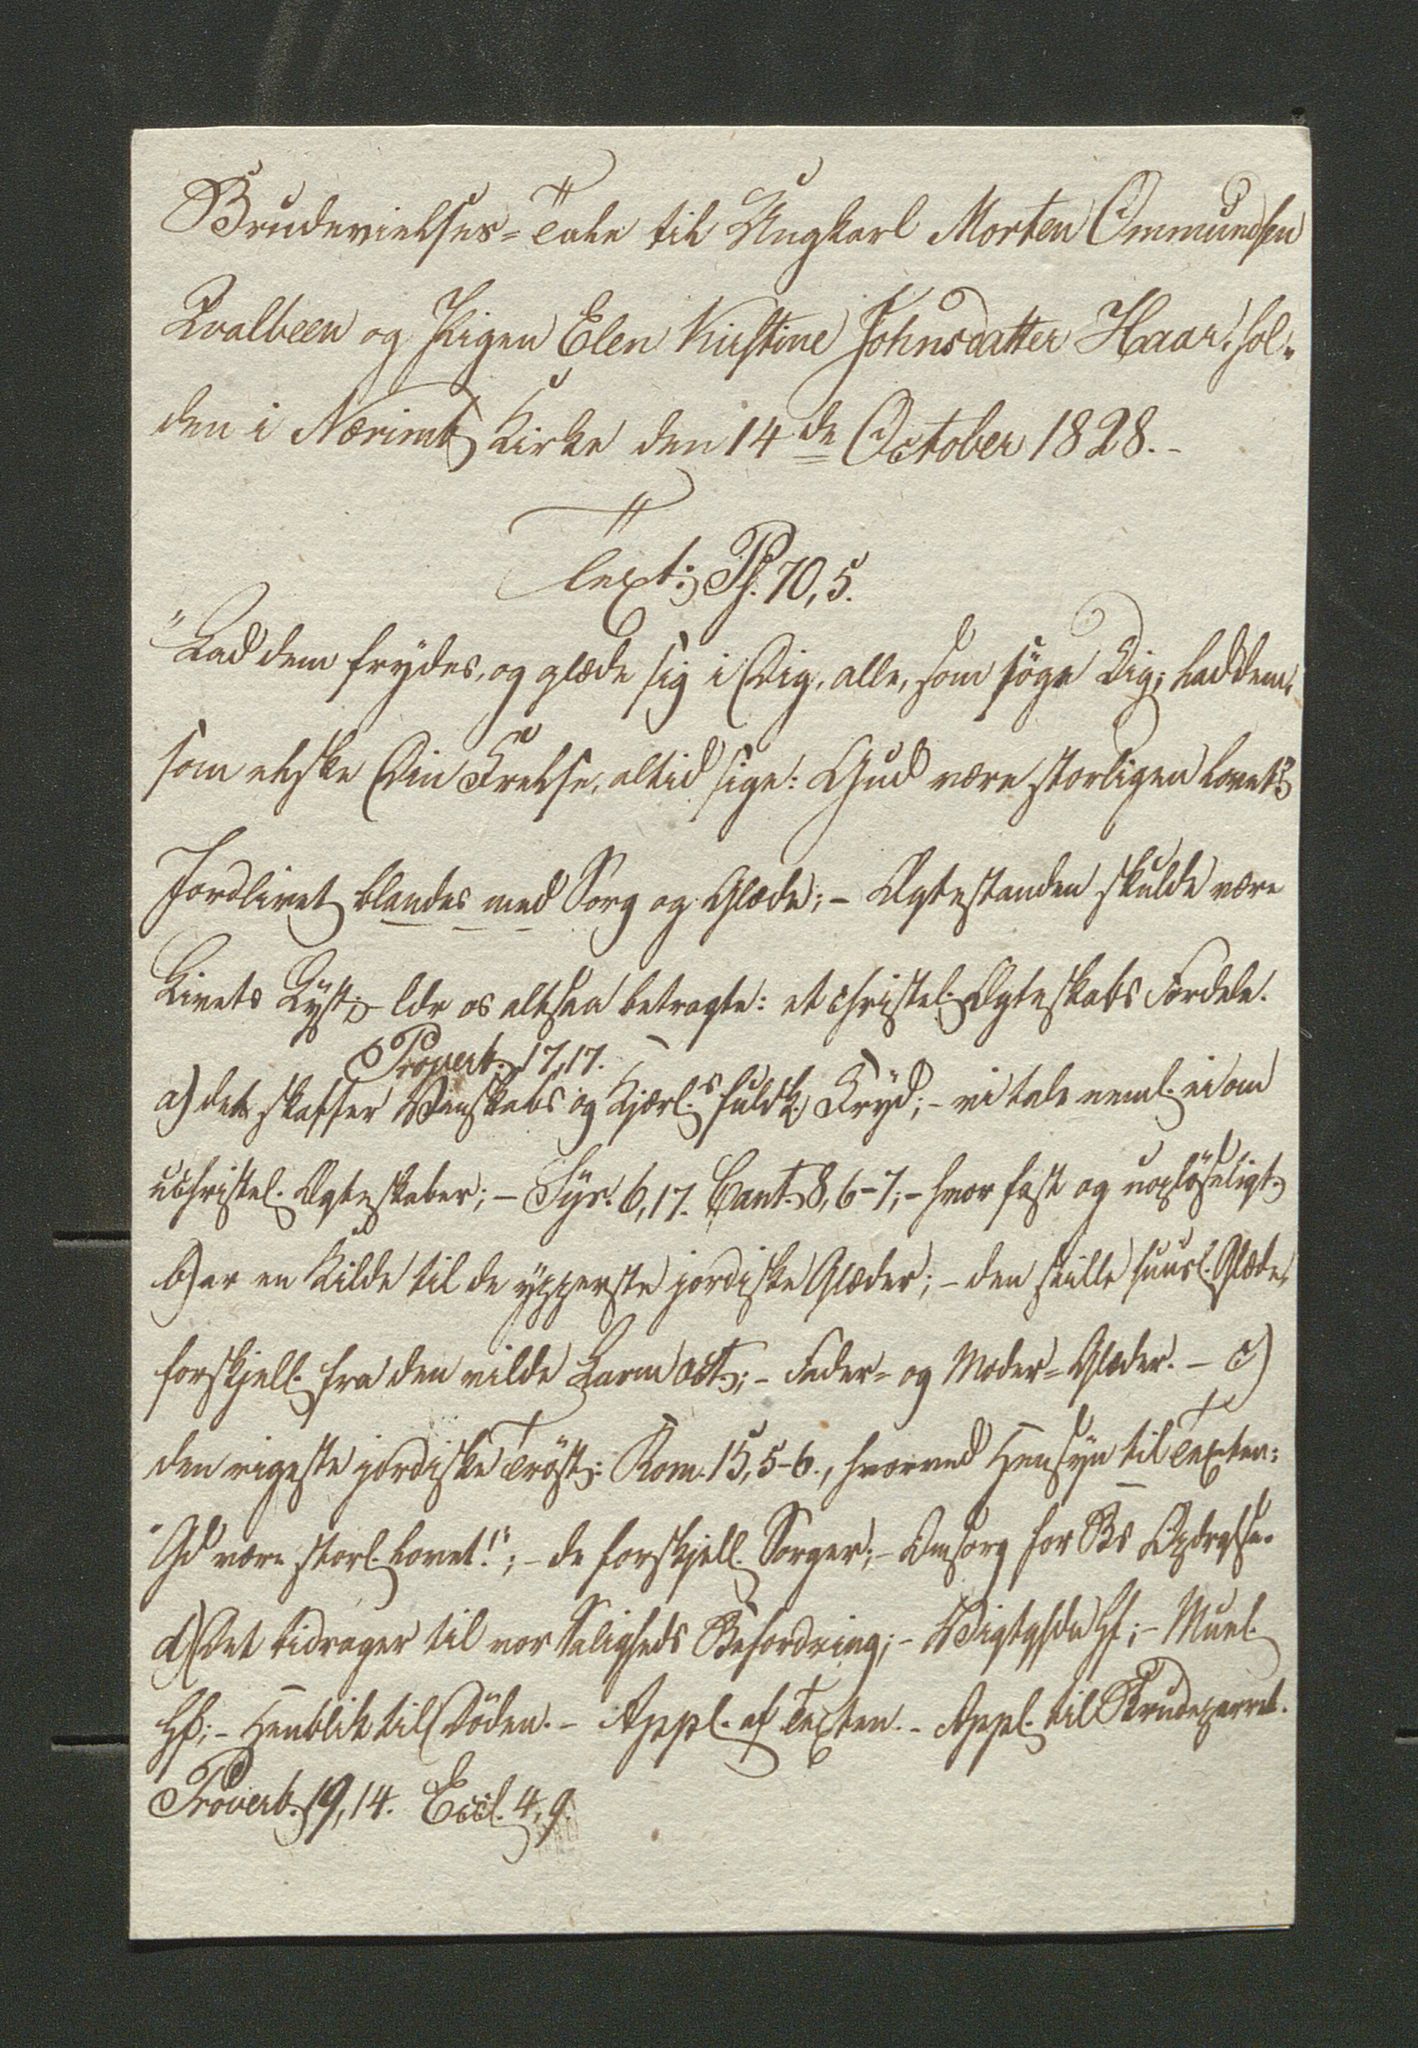 Brudevielses=Tale til Ungkarl Morten Ommundsen
Qvalbeen og Pigen Elen Kirstine Johnsdatter Haar, hol-
den i Nærims Kirke den 14de October 1828.-
Text: Ps. 70, 5.
"Lad dem frydes, og glæde sig i Dig, alle, som søge Dig; lad dem,
som elske Din Frelse, altid sige: Gud være storligen lovet!"
Jordlivet blandes med Sorg og Glæde; - Ægtestanden skulde være
Livets Lyst; - ldr os altsaa betragte: et christel. Ægteskabs Fordele.
Proverb. 17,17.
a) det skaffer Venskabs og Kjærl.s fuldk. Fryd; - vi tale neml. ei om
uchristel. Ægteskaber; - Syr. 6,17. Cant. 8, 6-7; - hvor fast og uopløseligt.
b) er en Kilde til de ypperste jordiske Glæder; - den stille huusl. Glæde,
forskjell. fra den vilde Larm oct.; - Fader= og Moder=Glæder. - c)
den rigeste jordiske Trøst: Rom. 15, 5-6., hvorved Hensyn til Texten:
"Gd være storl. lovet!"; - de forskjell. Sorger; - Omsorg for Bs Opdrgse.
d) Det bidrager til vor Saligheds Befordring; - - Muel.
Hf; - Henblik til Døden. - Appl. af Texten. - Appl. til Brudeparret.
Proverb. 19, 14. Eccl. 4, 9.